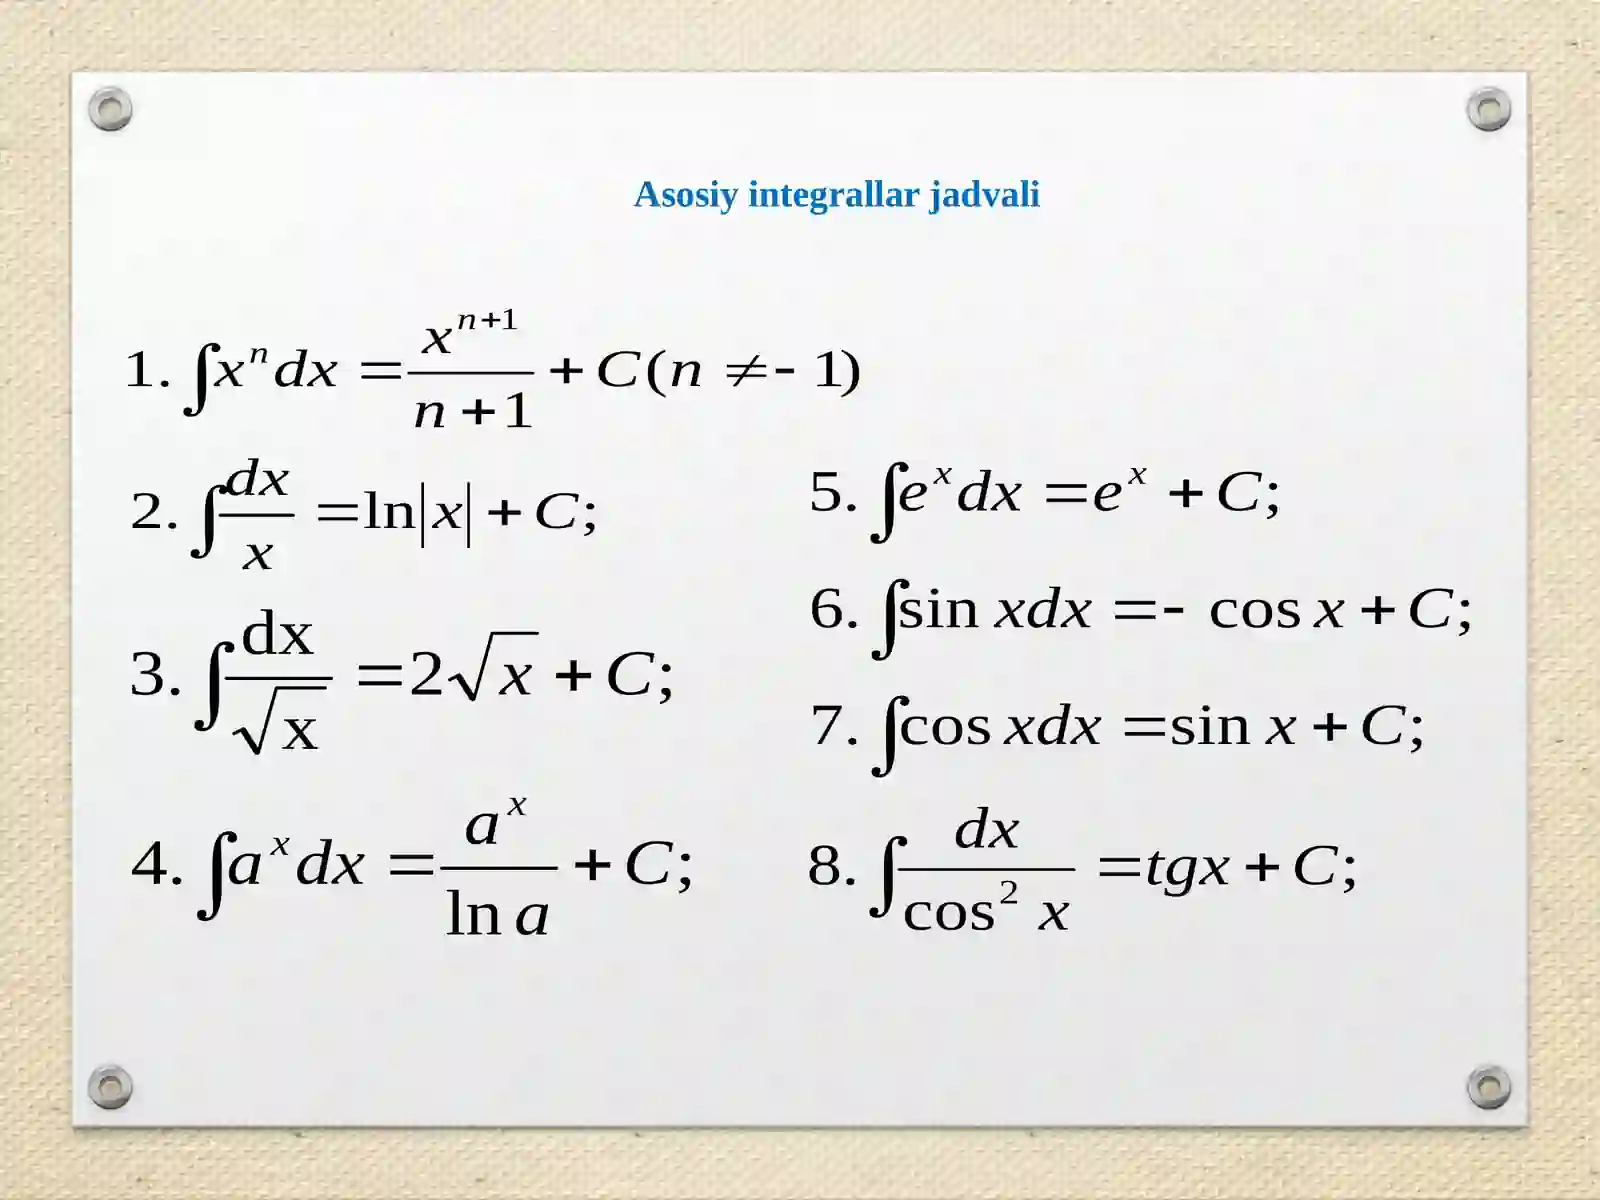 Asosiy integrallar jadvali
1. ∫xⁿdx = xⁿ⁺¹/(n+1) + C(n ≠ - 1)
2. ∫dx/x = ln|x| + C;
3. ∫dx/√x = 2√x + C;
4. ∫aˣdx = aˣ/ln a + C;
5. ∫eˣdx = eˣ + C;
6. ∫sin xdx = - cos x + C;
7. ∫cos xdx = sin x + C;
8. ∫dx/cos² x = tgx + C;